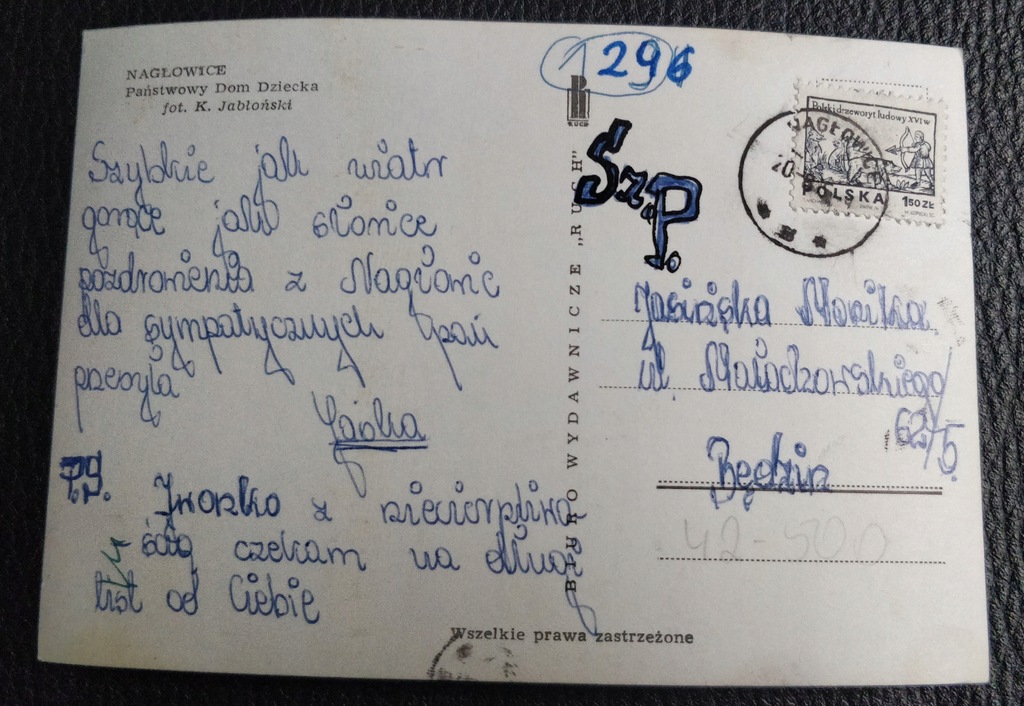 NAGŁOWICE
Państwowy Dom Dziecka
fot. K. Jabłoński
1296
RUCH
Sz.P.
Polski drzeworyt ludowy XVI w.
NAGŁOWICE
20
POLSKA
1 50 ZŁ
Szybkie jak wiatr
gorące jak słońce
pozdrowienia z Nagłowic
dla sympatycznych pań
przesyła
Jaśka
P.S. Iwonko z niecierpliwo
ścią czekam na długi
list od Ciebie
BIURO WYDAWNICZE „RUCH”
Jasińska
ul. Małachowskiego
62/5
Będzin
42-500
Wszelkie prawa zastrzeżone